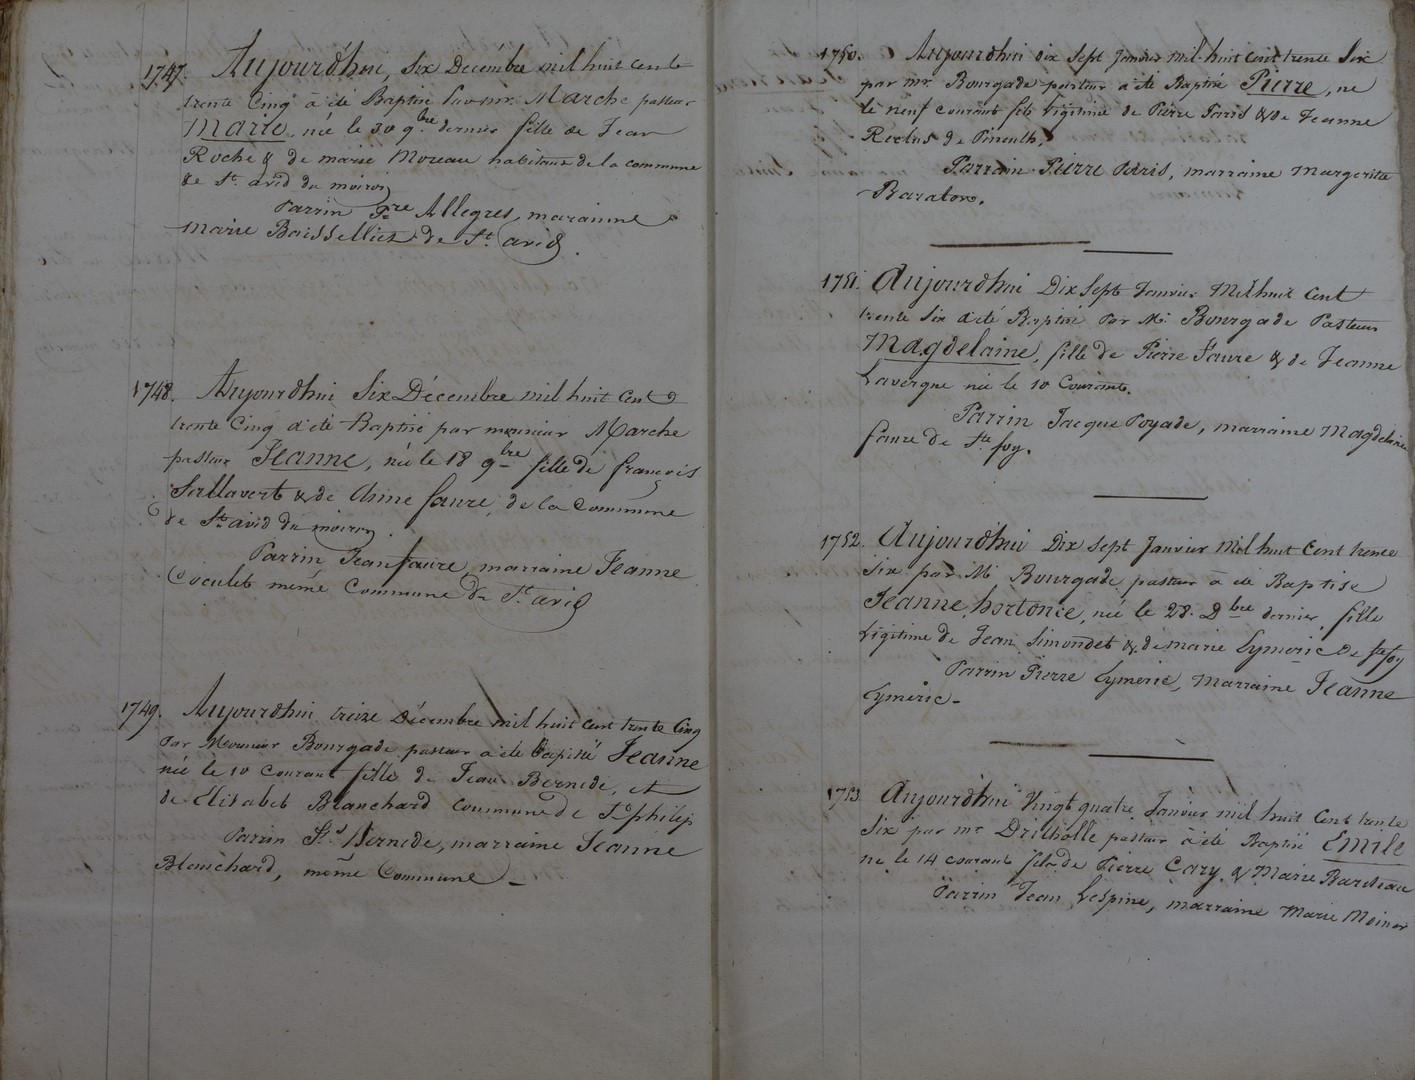 1747. Aujourd'hui, Six Décembre mil huit cent
trente Cinq à été Baptisé par mr. Marche pasteur
Marie, née le 30 9bre dernier fille de Jean
Roche & de marie Moreau habitans de la commune
de St. avid du moiron
Parrin Pre Allegres, marainne
Marie Boissellier de St. avid.
1748. Aujourdhui Six Décembre mil huit Cent
trente Cinq a été Baptisé par monsieur Marche
pasteur Jeanne, née le 18 9bre fille de françois
Sallavert & de Anne faure, de la Commune
de St. avid du moiron.
Parrin Jean faure, marraine Jeanne
même Commune de St. avid
1749. Aujourdhui treize Décembre mil huit cent trente Cinq
Par Monsieur Bourgade pasteur a été baptisé Jeanne
née le 10 courant fille de Jean Bernede, et
de Elisabet Blanchard commune de St. philip
Parrin Bernede, marraine Jeanne
Blanchard, même Commune
1750. Aujourdhui dix Sept Janvier mil huit Cent trente Six
par mr. Bourgade pasteur a été Baptisé Pierre, né
le neuf courant fils légitime de Pierre Paris & de Jeanne
Reclus de Pineuilh,
Parrain Pierre Paris, marraine Margerite
Baraton.
1751. Aujourdhui Dix Sept Janvier Mil huit Cent
trente Six a été Baptisé Par Mr. Bourgade Pasteur
Magdelaine, fille de Pierre Faure & de Jeanne
Lavergne née le 10 Courant.
Parrin Jacque Poyade, marraine Magdelaine
faure de Ste. foy.
1752. Aujourdhui Dix Sept Janvier Mil huit Cent trente
Six par Mr. Bourgade pasteur à été Baptise
Jeanne, hortonce, née le 28. Dbre dernier, fille
Légitime de Jean Simondet & de marie Eymeric de Ste foy
Parrin Pierre Eymeric, Marraine Jeanne
Eymeric
1753. Aujourdhui Vingt quatre Janvier mil huit Cent trente
Six par mr Drilholle pasteur à été Baptisé Emile
né le 14 courant fils de Pierre Cary & Marie Bariteau
Parrin Jean Lespine, marraine Marie Moinar